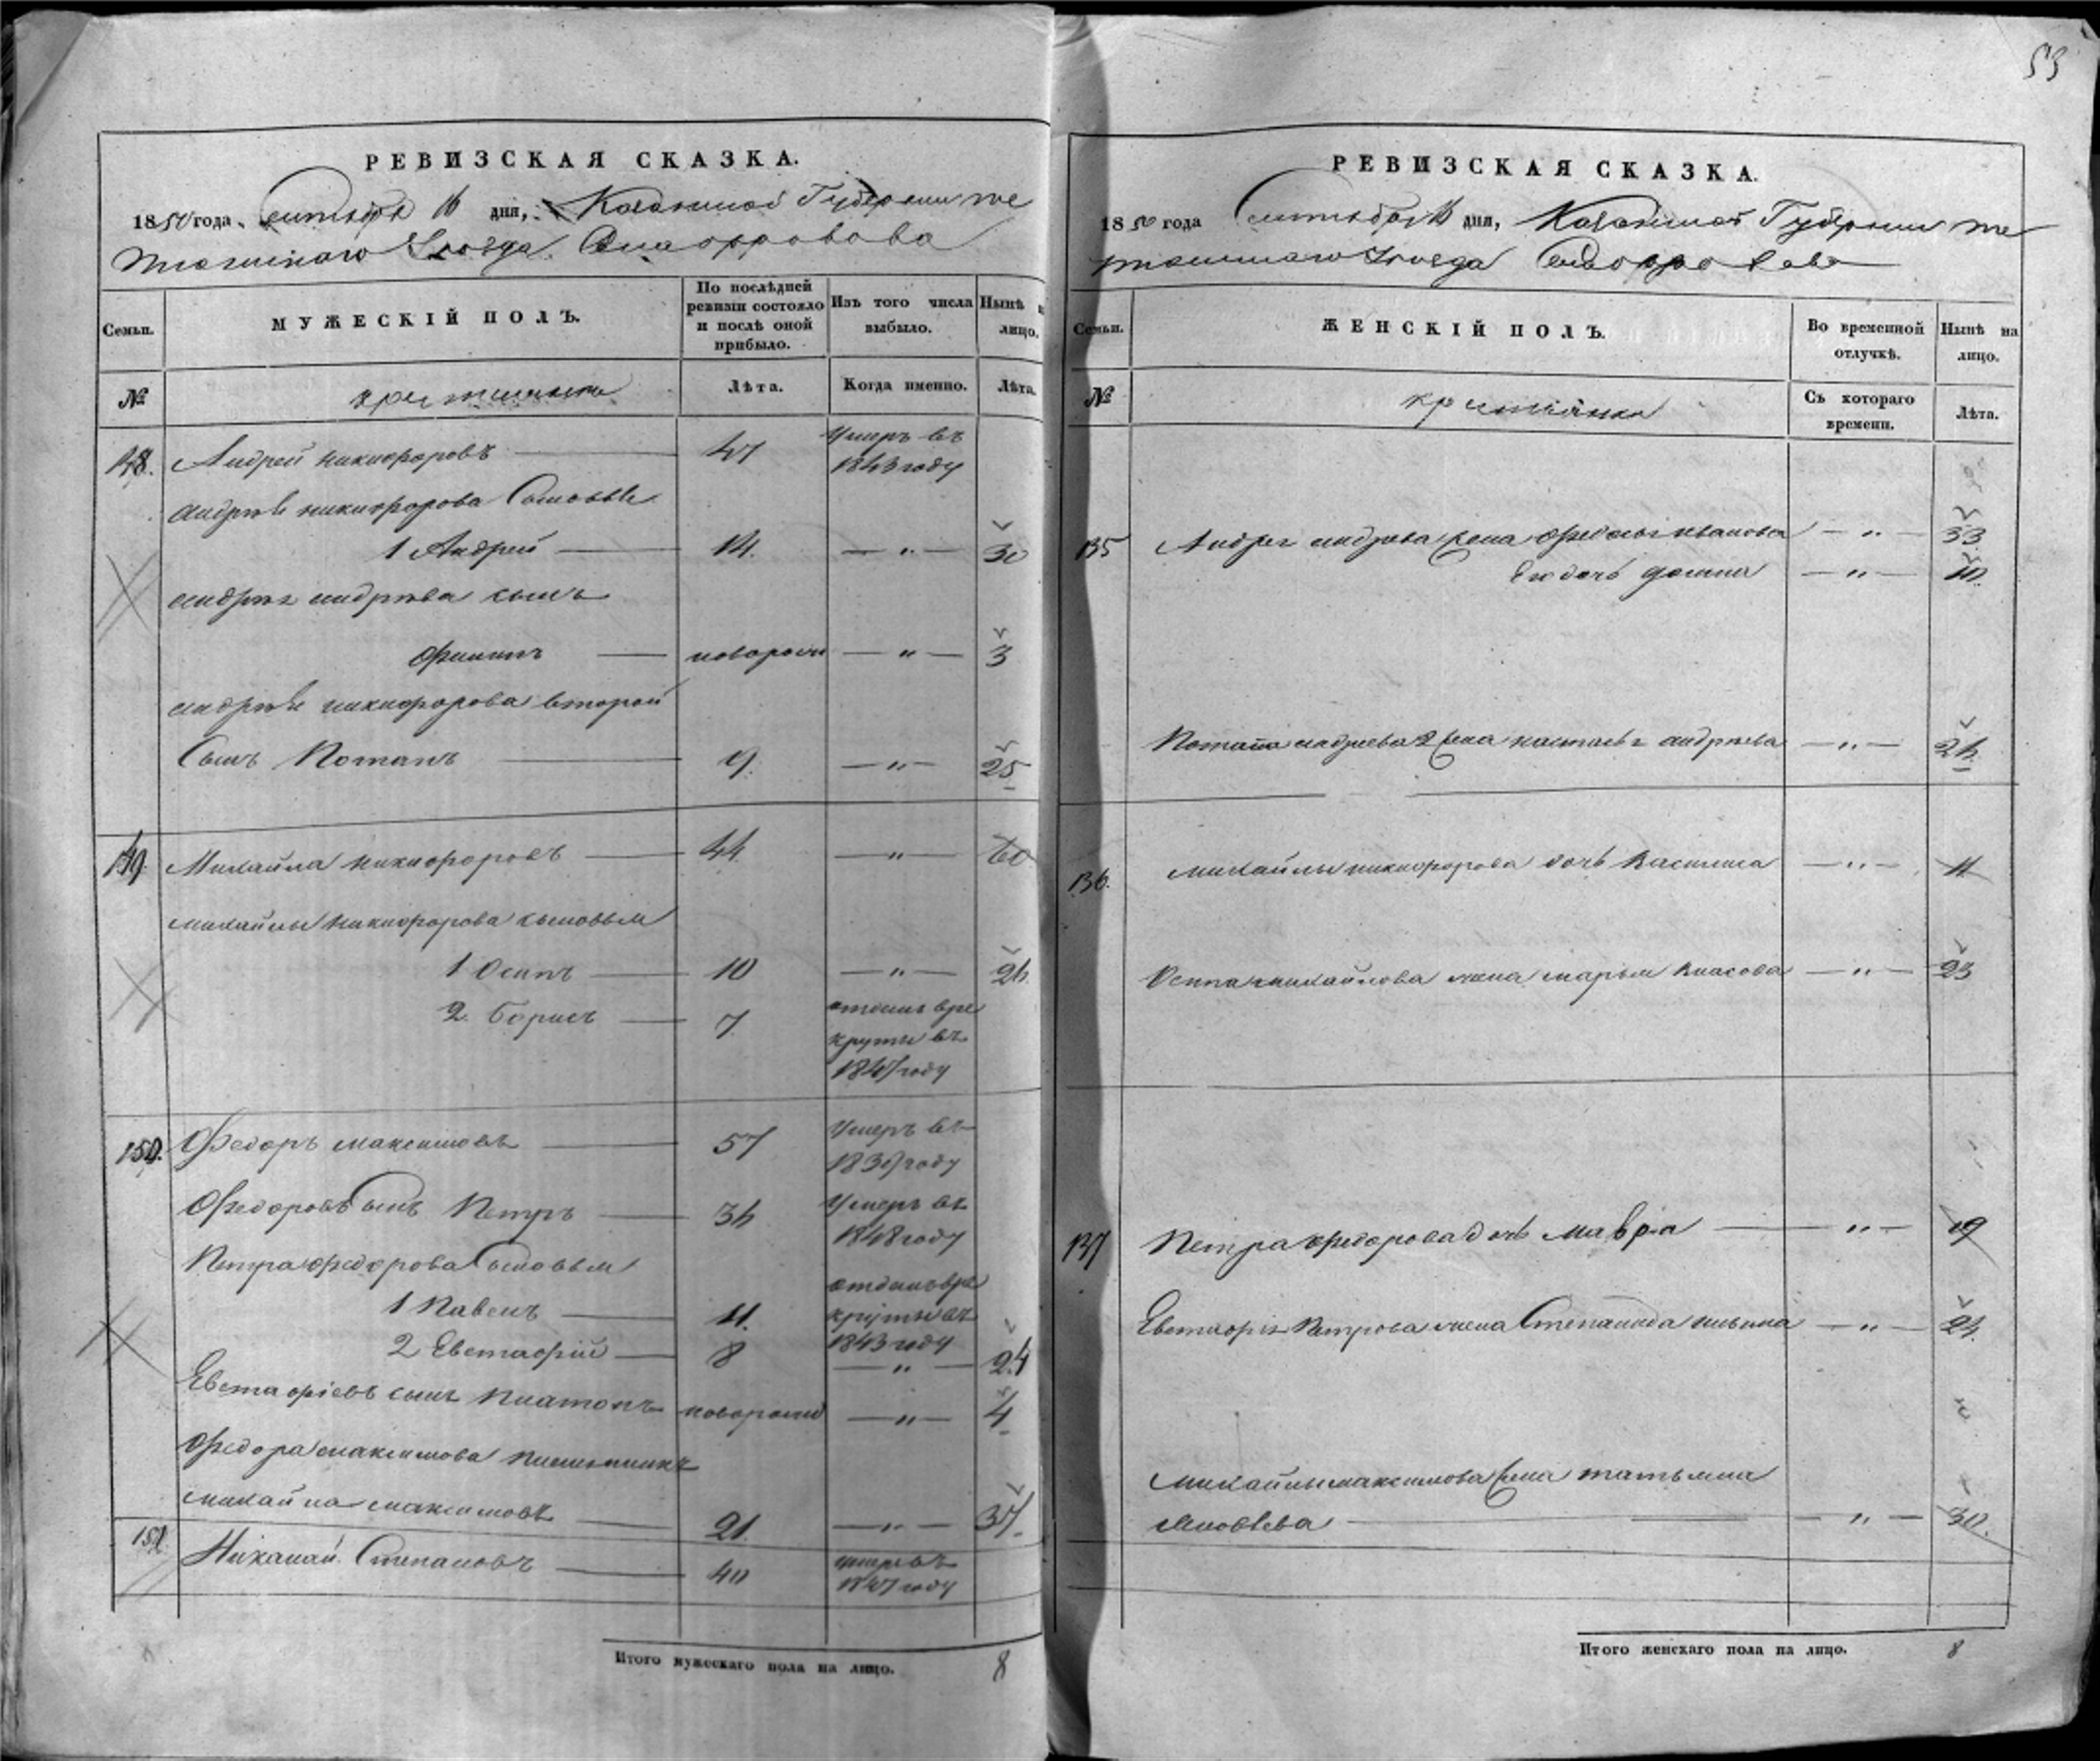 53
РЕВИЗСКАЯ СКАЗКА.
1850 года, сентября 16 дня, Казанской Губернии те
тюшскаго Уѣзда
Семьи.
МУЖЕСКІЙ ПОЛЪ.
По послѣдней ревизіи состояло и послѣ оной прибыло.
Изъ того числа выбыло.
Нынѣ на лицо.
№
крестьяне
Лѣта.
Когда именно.
Лѣта.
148. Андрей никифоровъ 47 Умеръ въ
1843 году
андрѣя никифорова Сыновья
1 Андрей 14. — " — 30
андрея андрѣева сынъ
Филипъ новорожд — " — 3
андрѣя никифорова второй
Сынъ Потапъ 9. — " — 25
149. Михайла никифоровъ 44 — " — 60
михайлы никифорова сыновья
1 Осипъ 10 — " — 26
2 Борисъ 7 отданъ вре
круты въ
1847 году
150. Федоръ максимовъ 57 Умеръ въ
1839 году
Федоровъ сынъ Петръ 36 Умеръ въ
1848 году
Петра федорова Сыновья
1 Павелъ 11. отданъ вре
круты въ
1843 году
2 Евстафій 8 — " — 24
Евстафіевъ сынъ Платонъ новорожд — " — 4
Федора максимова племянникъ
михайла максимовъ 21. — " — 37.
151. Николай Степановъ 40 умеръ въ
1847 году
Итого мужескаго пола на лицо. 8
РЕВИЗСКАЯ СКАЗКА.
1850 года сентября 16 дня, Казанской Губернии те
тюшскаго Уѣзда
Семьи.
ЖЕНСКІЙ ПОЛЪ.
Во временной отлучкѣ.
Нынѣ на лицо.
№
крестьянки
Съ котораго времени.
Лѣта.
135 Андрея андрева жена федосья иванова — " — 33
Ею дочь — " — 10.
Потапа андреева 2 жена настасья андрѣева — " — 26
136. михайлы никифорова дочь Василиса — " — 11
Осипа михайлова жена марья власова — " — 23
137 Петра федорова дочь мавра — " — 19
Евстафія Петрова жена Степанида ильина — " — 24.
михайлы максимова жена татьяна
— " — 30.
Итого женскаго пола на лицо. 8